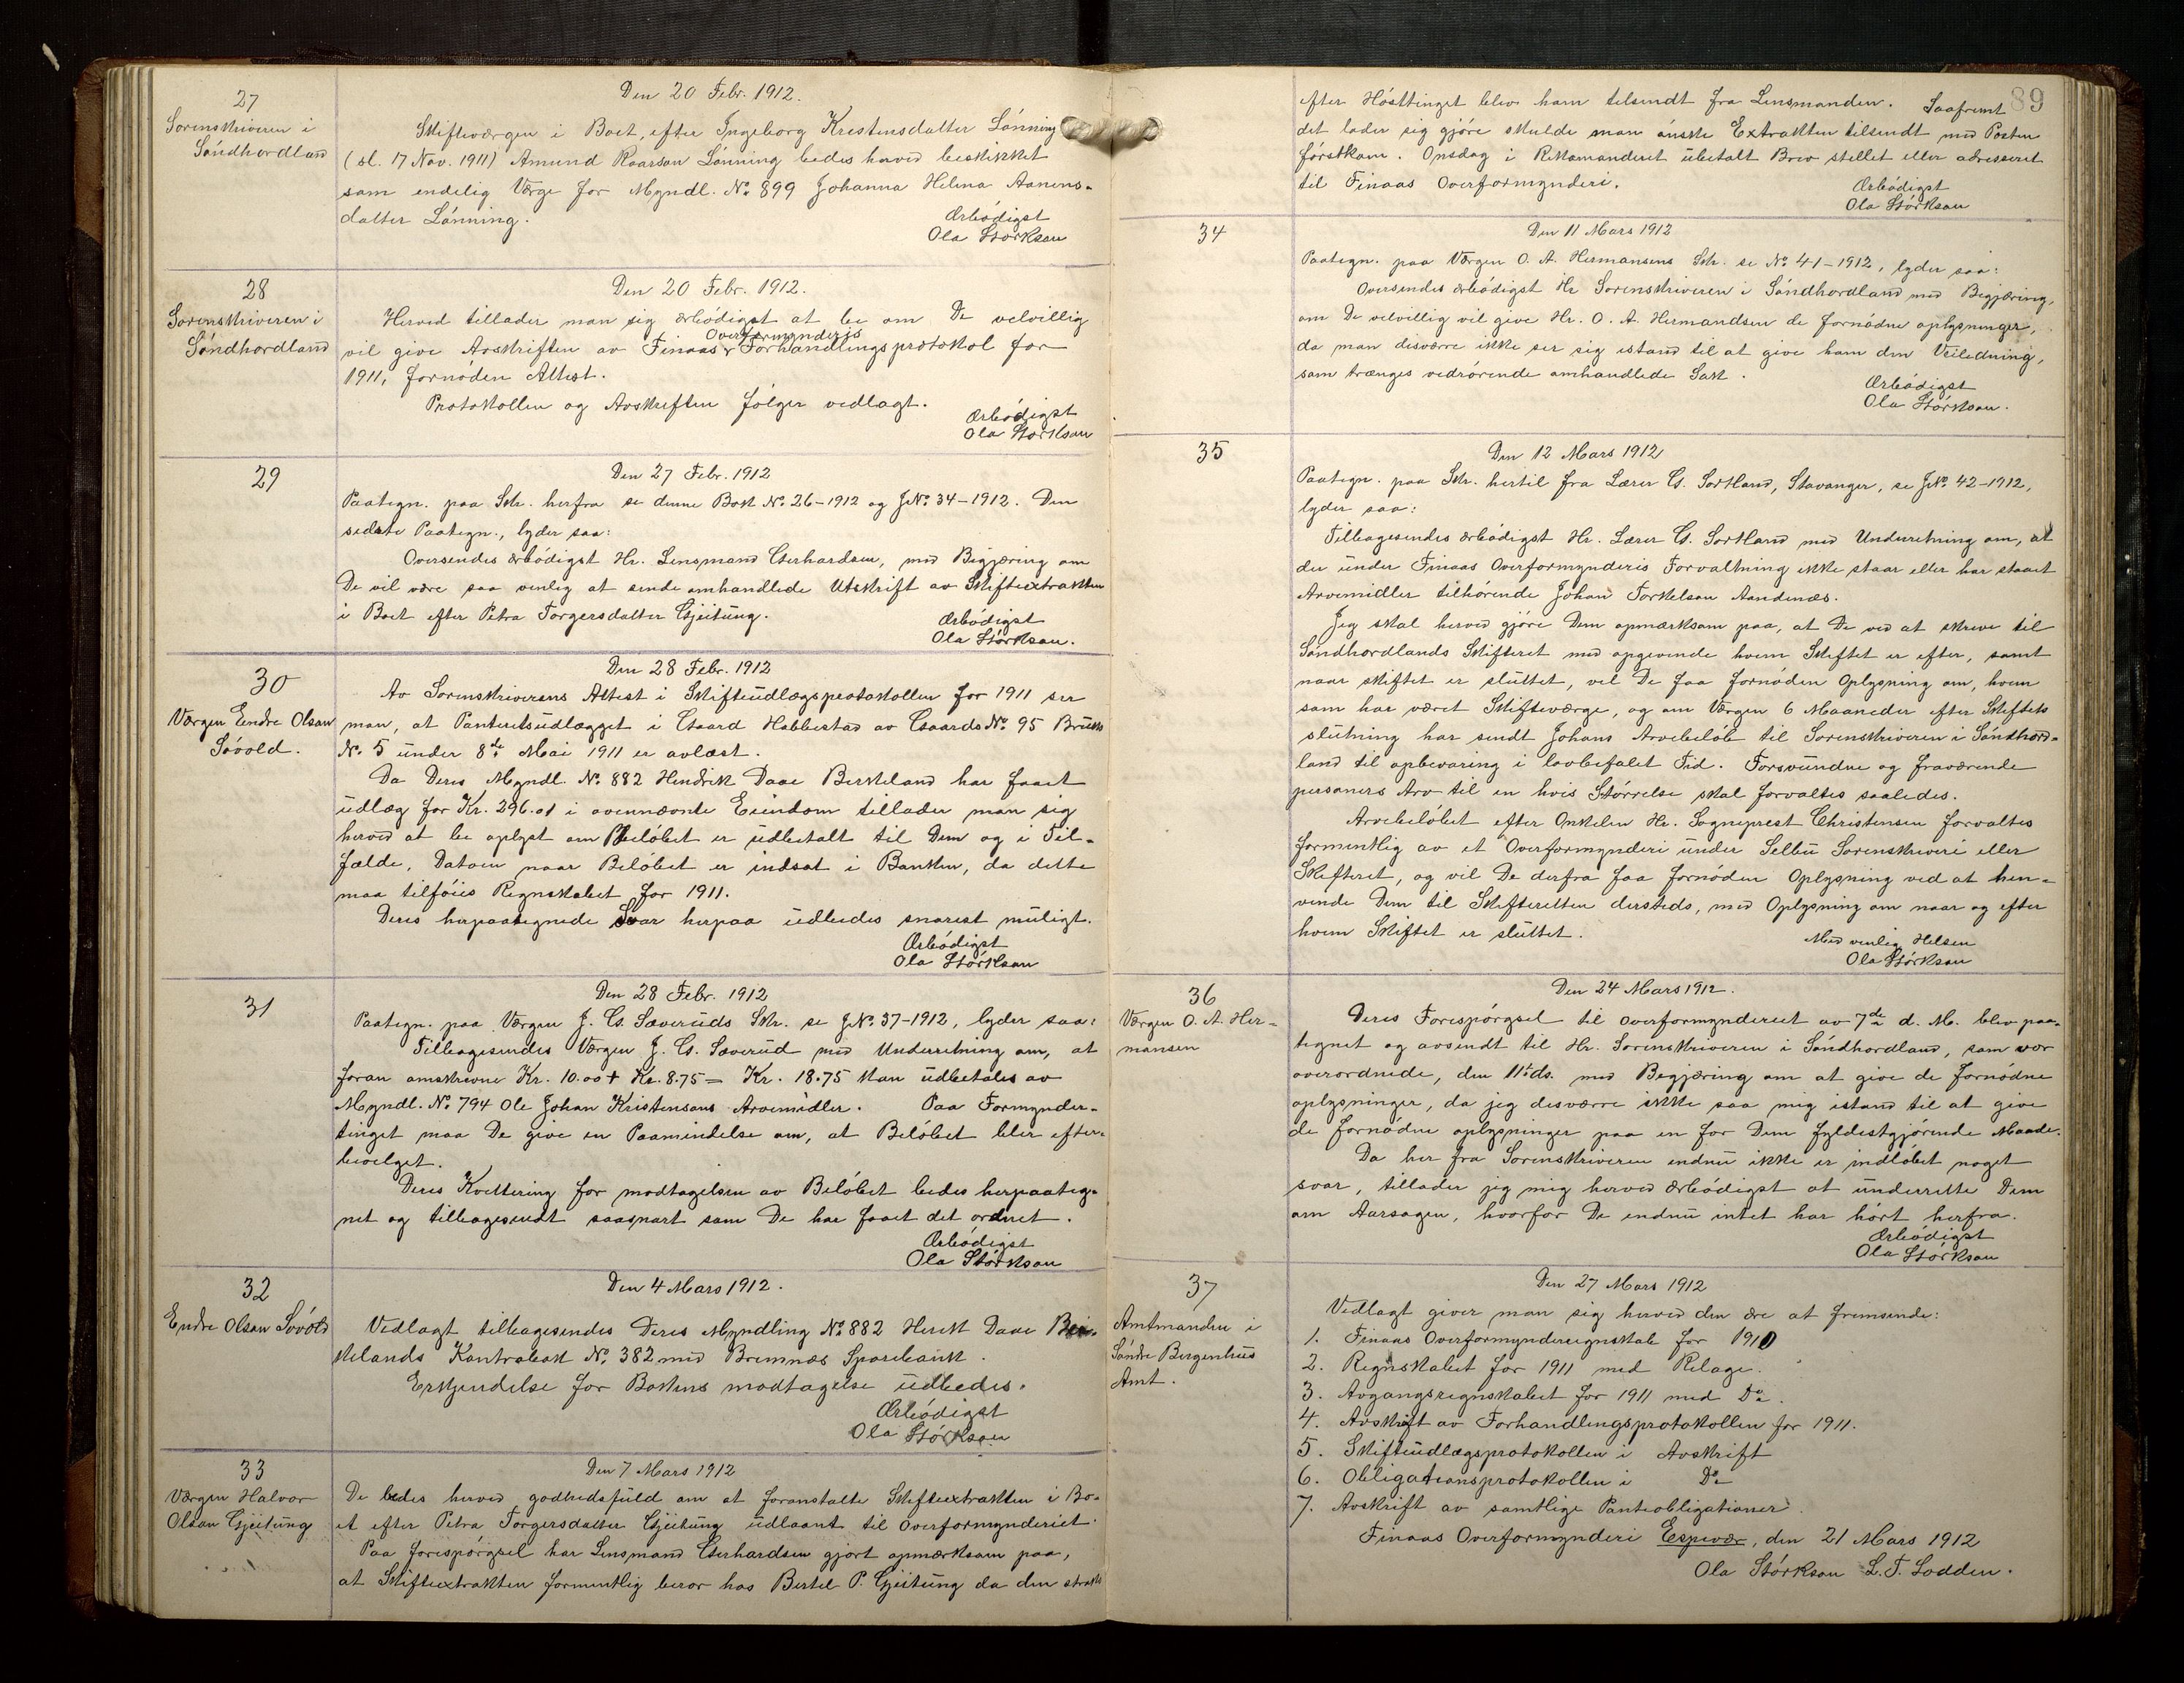 27
Sorenskriveren i
Söndhordland
Den 20 Febr. 1912.
Skifteværgen i Boet efter Ingeborg Kristensdatter Lönning
(sl. 17 Nov. 1911) Amund Roarson Lönning bedes herved beskikket
som endelig Værge for Myndl. No. 899 Johanna Helena Aanens-
datter Lönning.
Ærbödigst
Ola Störkson
28
Sorenskriveren i
Söndhordland
Den 20 Febr. 1912.
Herved tillader man sig ærbödigst at be om De velvillig
vil give Avskriften av Finaas Overformynderis Forhandlingsprotokol for
1911, fornöden Attest.
Protokollen og Avskriften fölger vedlagt.
Ærbödigst
Ola Störkson
29
Den 27 Febr. 1912
Paategn. paa Skr. herfra se denne Bok No. 26-1912 og JNo. 34-1912. Den
sidste Paategn., lyder saa:
Oversendes ærbödigst Hr. Lensmand Gerhardsen, med Begjæring om
De vil være saa venlig at sende omhandlede Utskrift av Skifteextrakten
i Boet efter Petra Torgersdatter Gjeitung.
Ærbödigst
Ola Störkson.
30
Værgen Endre Olson
Sövold.
Den 28 Febr. 1912
Av Sorenskriverens Attest i Skifteudlægsprotokollen for 1911 ser
man, at Panteretsudlægget i Gaard Habbestad av Gaards No. 95 Bruks
No. 5 under 8de Mai 1911 er avlæst.
Da Deres Myndl. No. 882 Hendrik Daae Berkeland har faaet
udlæg for Kr. 296.01 i ovennævnte Eiendom tillader man sig
herved at be oplyst om Beløbet er udbetalt til Dem og i Til-
fælde, Datoen naar Belöbet er indsat i Banken, da dette
maa tilföies Regnskabet for 1911.
Deres herpaategnede Svar herpaa udbedes snarest muligt.
Ærbödigst
Ola Störkson
31
Den 28 Febr. 1912
Paategn. paa Værgen J. G. Sæveruds Skr. se JNo. 37-1912, lyder saa:
Tilbagesendes Værgen J. G. Sæverud med Underretning om, at
foran omskrevne Kr. 10.00 + Kr. 8.75 = Kr. 18.75 kan udbetales av
Myndl. No. 794 Ole Johan Kristensens Arvemidler. Paa Formynder-
tinget maa De give en Paamindelse om, at Belöbet blir efter-
bevilget.
Deres Kvittering for modtagelsen av Belöbet bedes herpaateg-
net og tilbagesendt saasnart som De har faaet det ordnet.
Ærbödigst
Ola Störkson
32
Endre Olson Sövold
Den 4 Mars 1912.
Vedlagt tilbagesendes Deres Myndling No. 882 Henrik Daae Ber-
kelands Kontrabok No. 382 med Bremnes Sparebank.
Erkjendelse for Bokens modtagelse udbedes.
Ærbödigst
Ola Störkson
33
Værgen Halvor
Olson Gjeitung
Den 7 Mars 1912
De bedes herved godhedsfuld om at foranstalte Skifteextrakten i Bo-
et efter Petra Torgersdatter Gjeitung udlaant til Overformynderiet.
Paa forespörgsel har Lensmand Gerhardsen gjort opmærksom paa,
at Skifteextrakten formentlig beror hos Bertel P. Gjeitung da den straks
89
efter Hösttinget blev ham tilsendt fra Lensmanden. Saafremt
det lader sig gjöre skulde man önske Extrakten tilsendt med Posten
förstkom. Onsdag i Rekomanderet ubetalt Brev stillet eller adresseret
til Finaas Overformynderi.
Ærbödigst
Ola Störkson
34
Den 11 Mars 1912
Paategn. paa Værgen O. A. Hermansens Skr. se No. 41-1912, lyder saa:
Oversendes ærbödigst Hr. Sorenskriveren i Söndhordland med Begjæring,
om De velvillig vil give Hr. O. A. Hermandsen de fornödne oplysninger,
da man desværre ikke ser sig istand til at give ham den Veiledning,
som trænges vedrörende omhandlede Sak.
Ærbödigst
Ola Störkson.
35
Den 12 Mars 1912
Paategn. paa Skr. hertil fra Lærer G. Sortland, Stavanger, se JNo. 42-1912,
lyder saa:
Tilbagesendes ærbödigst Hr. Lærer G. Sortland med Underretning om, at
der under Finaas Overformynderis Forvaltning ikke staar eller har staaet
Arvemidler tilhörende Johan Torkelson Aandenæs.
Jeg skal herved gjöre Dem opmærksom paa, at De ved at skrive til
Söndhordlands Skifteret med opgivende hvem Skiftet er efter, samt
naar skiftet er sluttet, vil De faa fornöden Oplysning om, hvem
som har været Skifteværge, og om Værgen 6 Maaneder efter Skiftets
slutning har sendt Johans Arvebelöb til Sorenskriveren i Söndhord-
land til opbevaring i lovbefalet Tid. Forsvundne og fraværende
personers Arv til en hvis Störrelse skal forvaltes saaledes.
Arvebelöbet efter Onkelen Hr. Sogneprest Christensen forvaltes
formentlig av et Overformynderi under Selbu Sorenskriveri eller
Skifteret, og vil De derfra faa fornöden Oplysning ved at hen-
vende Dem til Skifteretten dersteds, med Oplysning om naar og efter
hvem Skiftet er sluttet.
Med venlig Helsen
Ola Störkson
36
Værgen O. A. Her-
mansen
Den 24 Mars 1912.
Deres Forespörgsel til Overformynderiet av 7de d. M. blev paa-
tegnet og avsendt til Hr. Sorenskriveren i Söndhordland, som vor
overordnede, den 11te ds. med Begjæring om at give de fornödne
oplysninger, da jeg desværre ikke saa mig istand til at give
de fornödne oplysninger paa en for Dem fyldestgjörende Maade.
Da her fra Sorenskriveren endnu ikke er indlöbet noget
svar, tillader jeg mig herved ærbödigst at underrette Dem
om Aarsagen, hvorfor De endnu intet har hört herfra.
Ærbödigst
Ola Störkson
37
Amtmanden i
Söndre Bergenhus
Amt.
Den 27 Mars 1912
Vedlagt giver man sig herved den ære at fremsende:
1. Finaas Overformynderregnskab for 1910
2. Regnskabet for 1911 med Bilage.
3. Avgangsregnskabet for 1911 med Do.
4. Avskrift av Forhandlingsprotokollen for 1911.
5. Skifteudlægsprotokollen i Avskrift
6. Obligationsprotokollen i Do
7. Avskrift av samtlige Panteobligationer.
Finaas Overformynderi Espevær, den 21 Mars 1912
Ola Störkson L. T. Lodden.